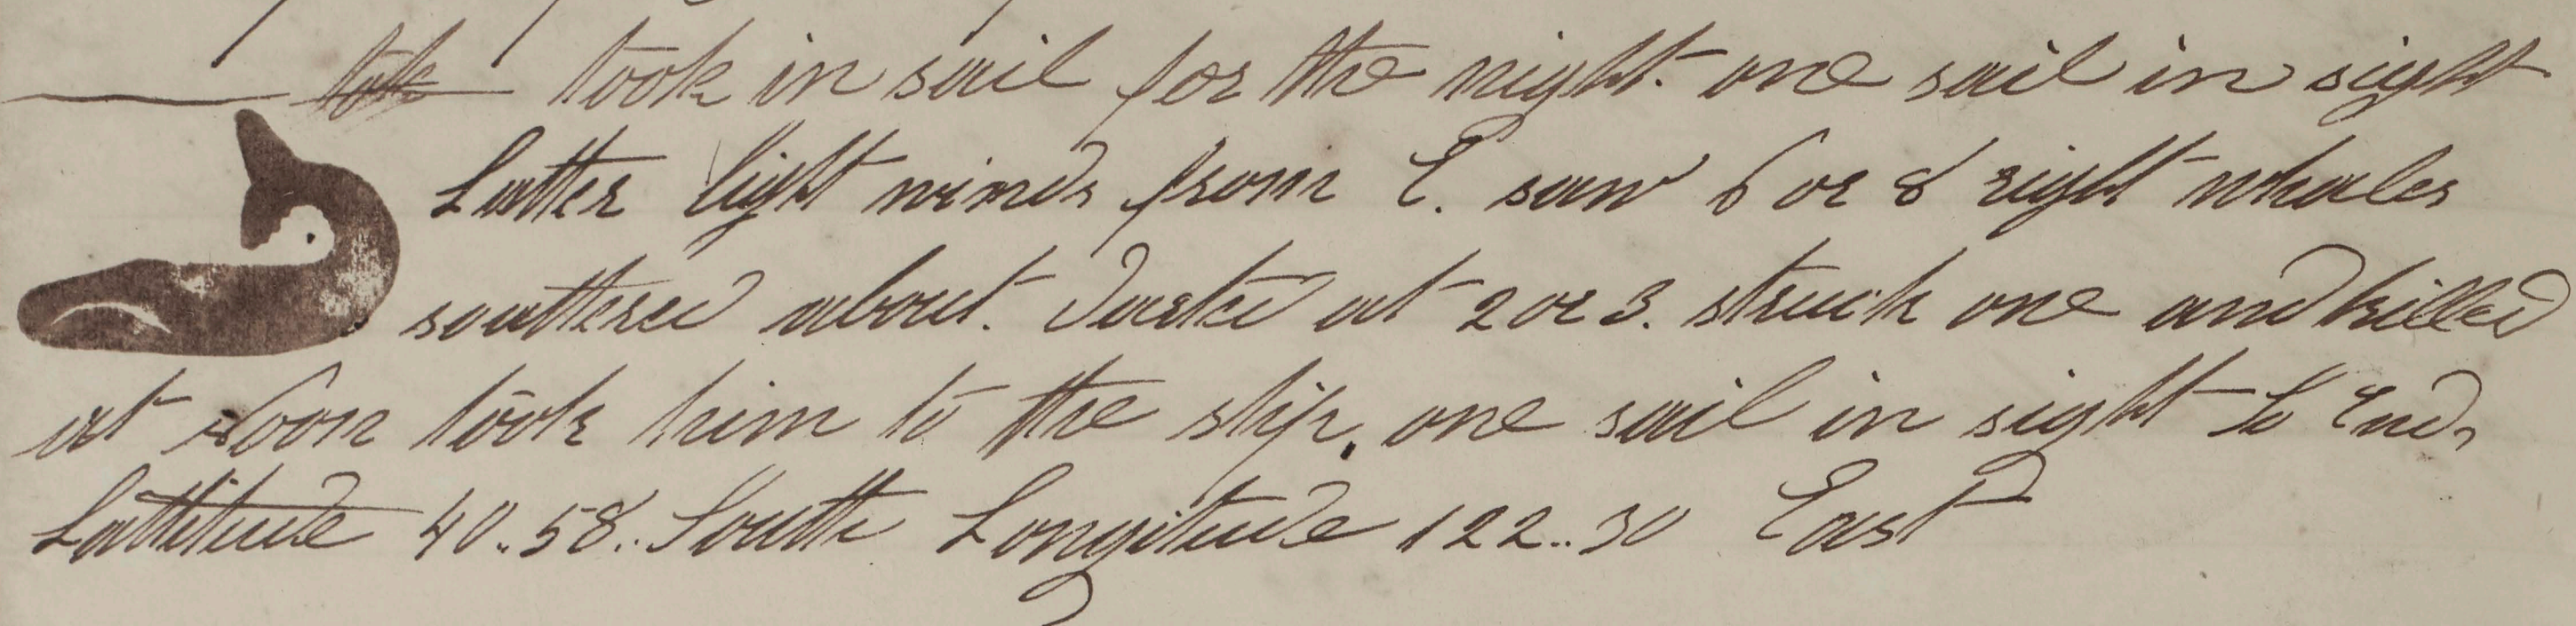 took in sail for the night. one sail in sight
Latter light winds from E. saw 6 or 8 right whales
scattered about. Darted at 2 or 3. struck one and killed
at Noon took him to the ship. one sail in sight to
Lattitude 40..58.. South Longitude 122..30 East